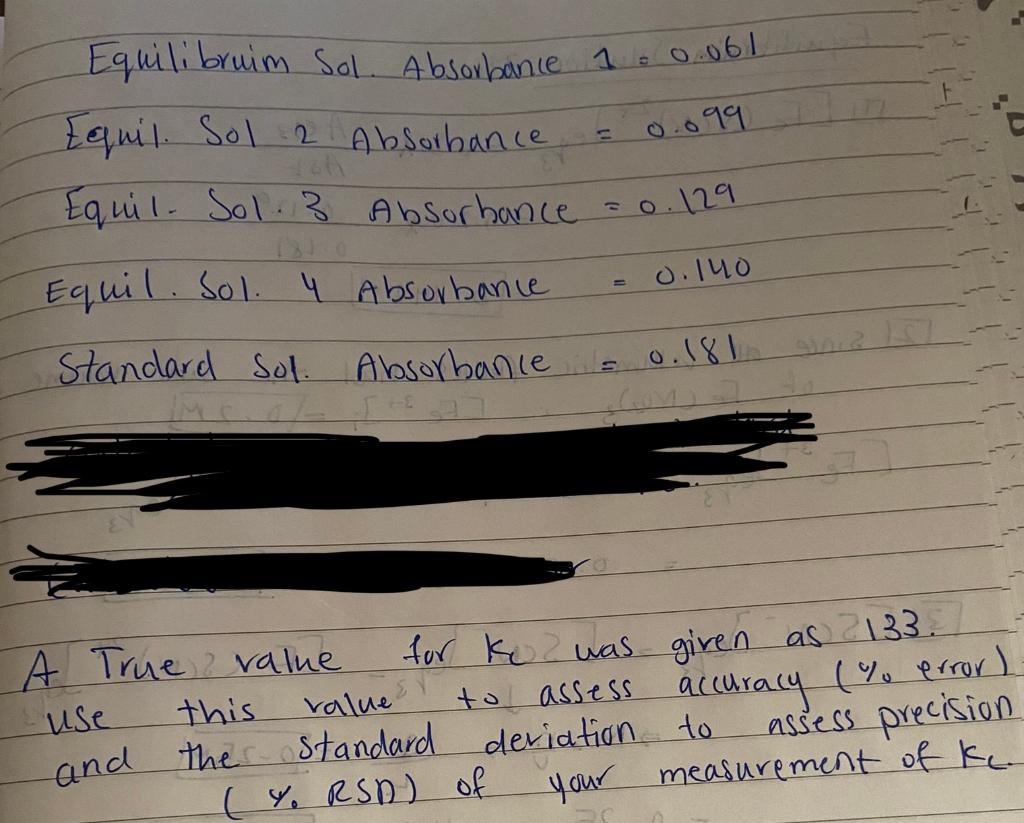 Equilibruim Sol. Absorbance 1 = 0.061
Equil. Sol 2 Absorbance = 0.099
Equil. Sol. 3 Absorbance = 0.129
Equil. Sol. 4 Absorbance = 0.140
Standard Sol. Absorbance = 0.181
A True value for Kc was given as 133.
use this value to assess accuracy (% error)
and the standard deviation to assess precision
(% RSD) of your measurement of Kc.